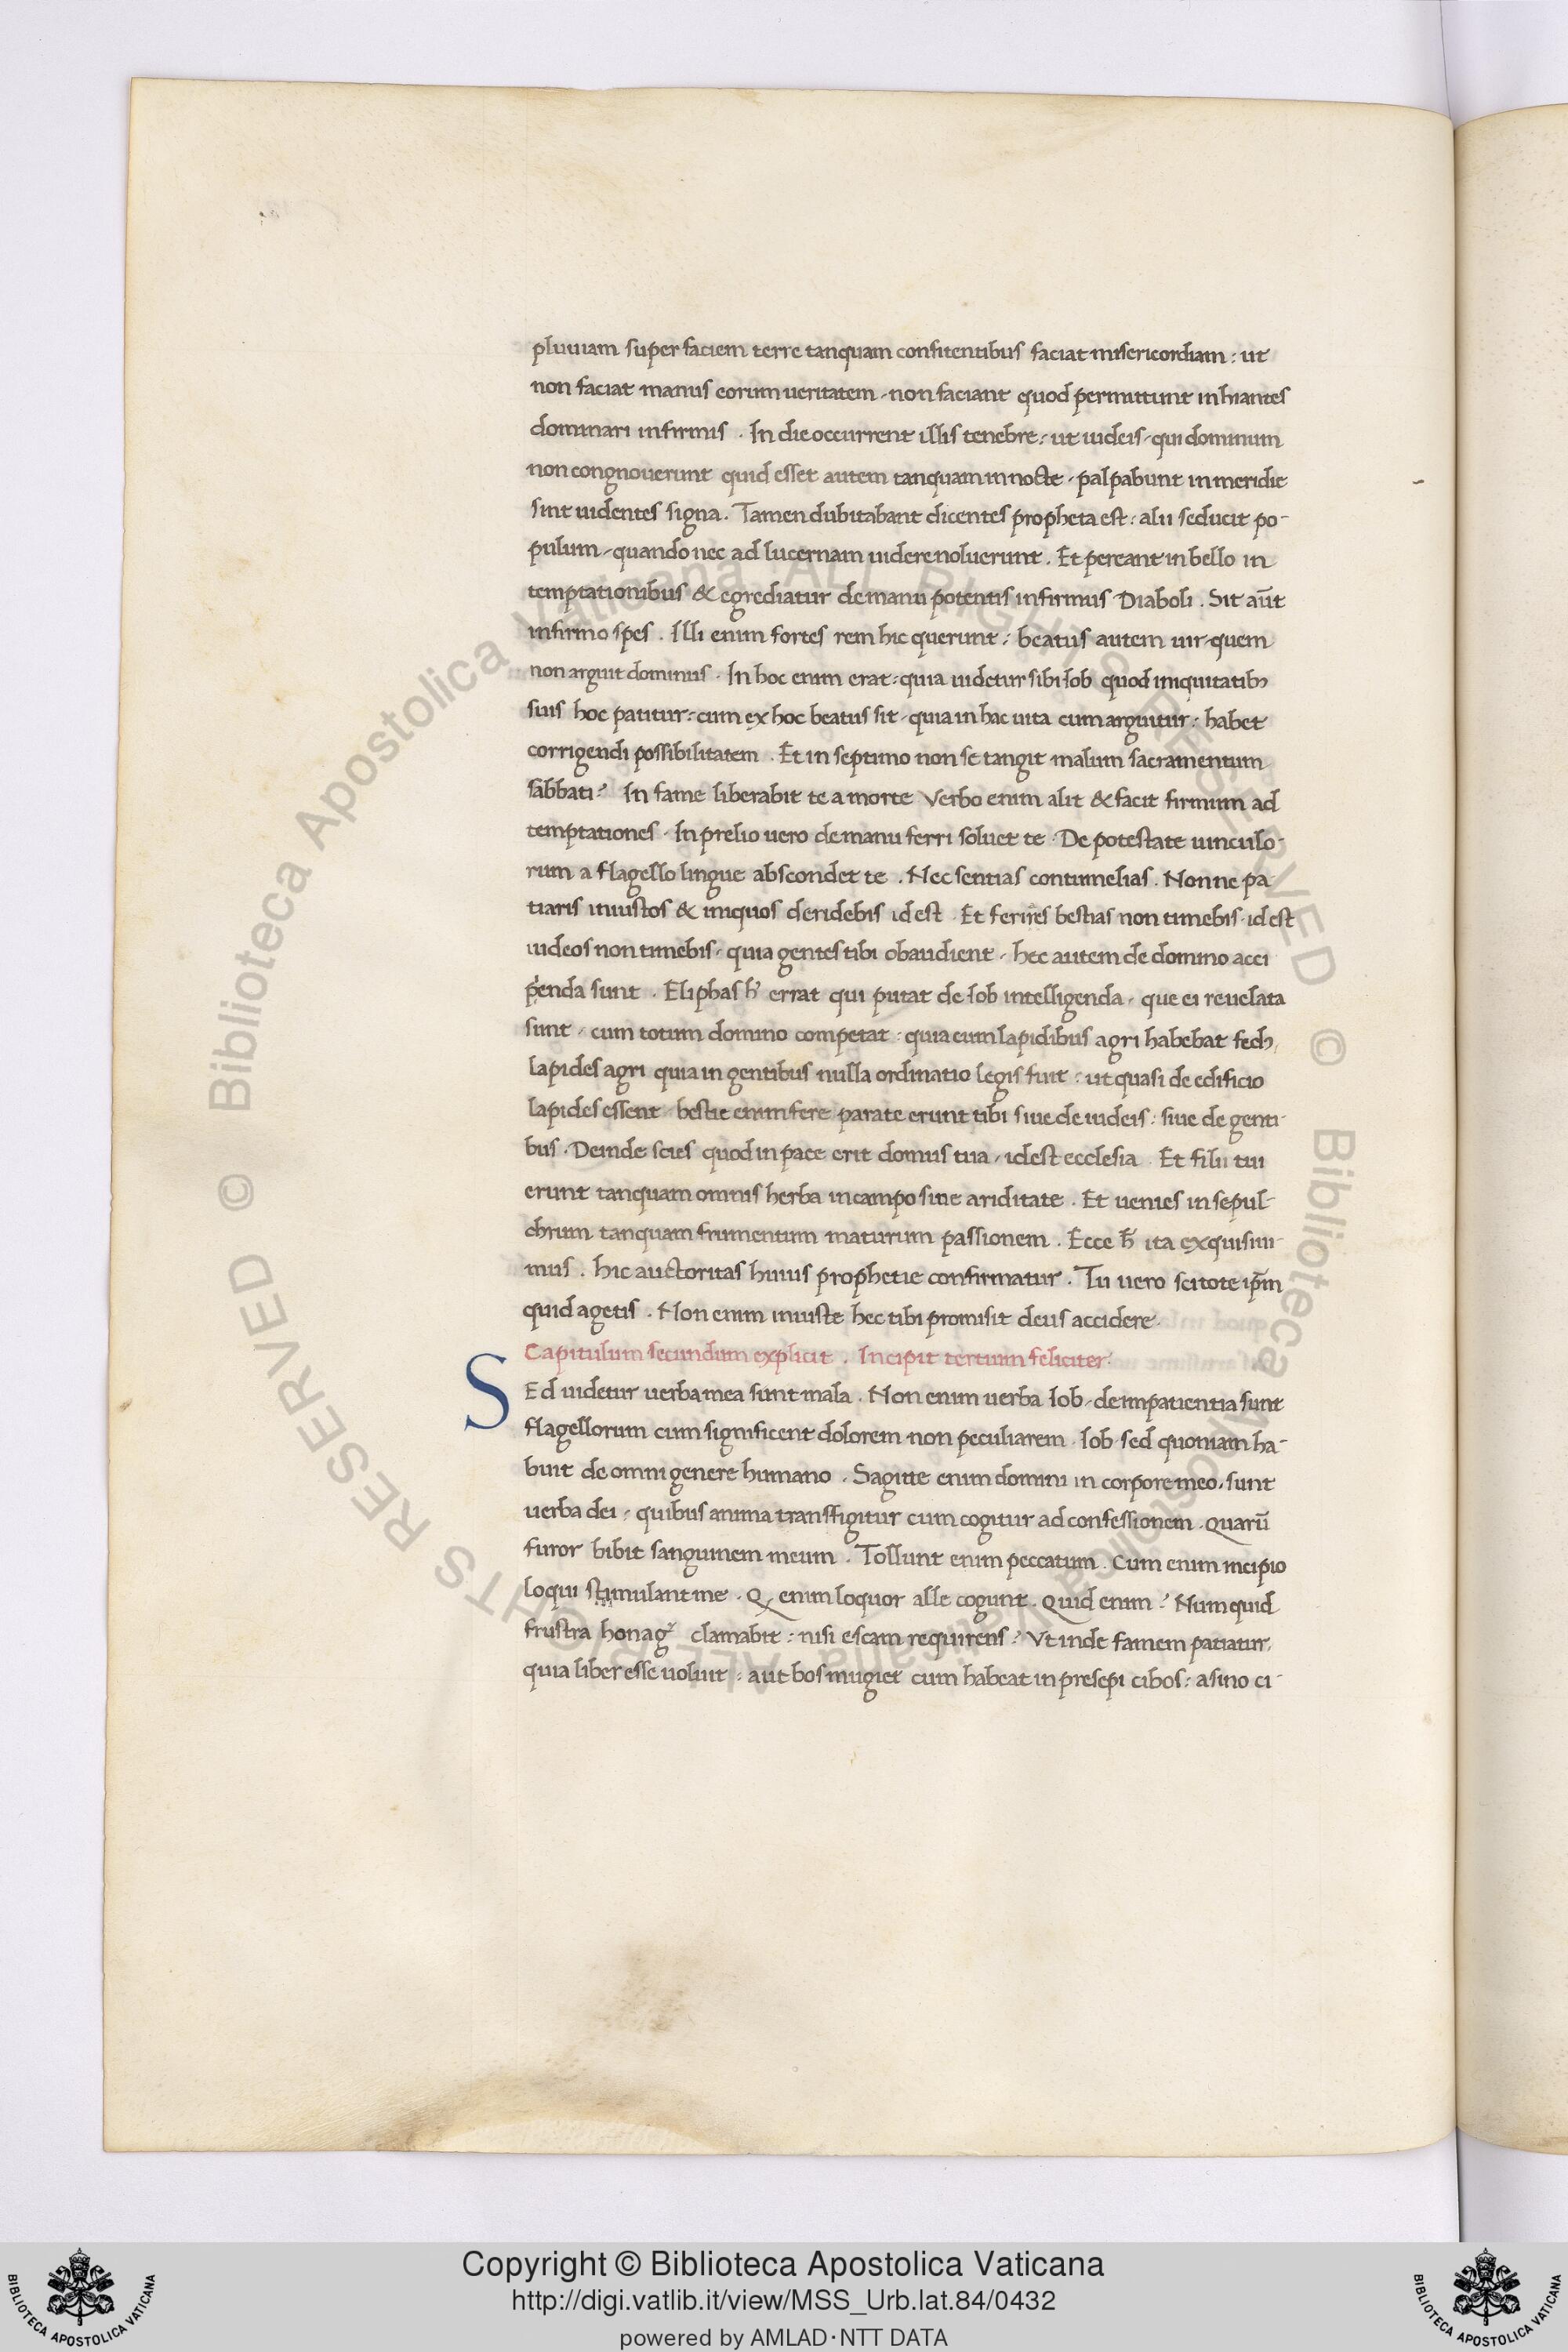 pluuiam super faciem terre tanquam confitentibus faciat misericordiam : ut
non faciat manus eorum ueritatem · non faciant quod permittunt inhiantes
dominari infirmis . In die occurrent illis tenebre : ut iudeis · qui dominum
non congnouerunt quid esset autem tanquam in nocte · palpabunt in meridie
sint uidentes signa . Tamen dubitabant dicentes propheta est : alii seducit po-
pulum · quando nec ad lucernam uidere noluerunt . Et pereant in bello in
temptationibus & egrediatur de manu potentis infirmus Diaboli . Sit aūt
infirmo spes . Illi enim fortes rem hic querunt : beatus autem uir · quem
non arguit dominus . In hoc enim erat : quia uidetur sibi Iob quod iniquitatibꝫ
suis hoc patitur : cum ex hoc beatus sit · quia in hac uita cum arguitur : habet
corrigendi possibilitatem . Et in septimo non se tangit malum sacramentum
sabbati ? In fame liberabit te a morte Verbo enim alit & facit firmum ad
temptationes · In prelio uero de manu ferri soluet te · De potestate uinculo-
rum a flagello lingue abscondet te . Nec sentias contumelias . Nonne pa
tiaris iniustos & iniquos deridebis id est . Et ferires bestias non timebis · id est
iudeos non timebis · quia gentes tibi obaudient · hec autem de domino acci
penda sunt . Eliphas h̄ errat qui putat de Iob intelligenda · que ei reuelata
sunt · cum totum domino competat · quia cum lapidibus agri habebat fedꝫ
lapides agri quia in gentibus nulla ordinatio legis fuit : ut quasi de edificio
lapides essent · bestie enim fere parate erunt tibi siue de iudeis : siue de genti-
bus . Deinde scies quod in pace erit domus tua · id est ecclesia . Et filii tui
erunt tanquam omnis herba in campo sine ariditate . Et uenies in sepul-
chrum tanquam frumentum maturum passionem . Ecce h̄ ita exquisiui-
mus . hic auctoritas huius prophetie confirmatur . Tu uero scitote ip̄m
quid agetis . Non enim iniuste hec tibi promisit deus accidere .
Capitulum secundum explicit . Incipit tertium feliciter .
SEd uidetur uerba mea sunt mala . Non enim uerba Iob · de impatientia sunt
flagellorum cum significent dolorem non peculiarem · Iob · sed quoniam ha-
buit de omni genere humano . Sagitte enim domini in corpore meo · sunt
uerba dei · quibus anima transfigitur cum cogitur ad confessionem . Quarū
furor bibit sanguinem meum . Tollunt enim peccatum . Cum enim incipio
loqui stimulant me . Q enim loquor alle cogunt . Quid enim ? Num quid
frustra honag clamabit : nisi escam requirens ? Vt inde famem patiatur ·
quia liber esse uoluit : aut bos mugiet cum habeat in presepi cibos : asino ci-
Copyright © Biblioteca Apostolica Vaticana
http://digi.vatlib.it/view/MSS_Urb.lat.84/0432
powered by AMLAD·NTT DATA
BIBLIOTECA APOSTOLICA VATICANA
BIBLIOTECA APOSTOLICA VATICANA
© Biblioteca Apostolica Vaticana ALL RIGHTS RESERVED © Biblioteca Apostolica Vaticana ALL RIGHTS RESERVED